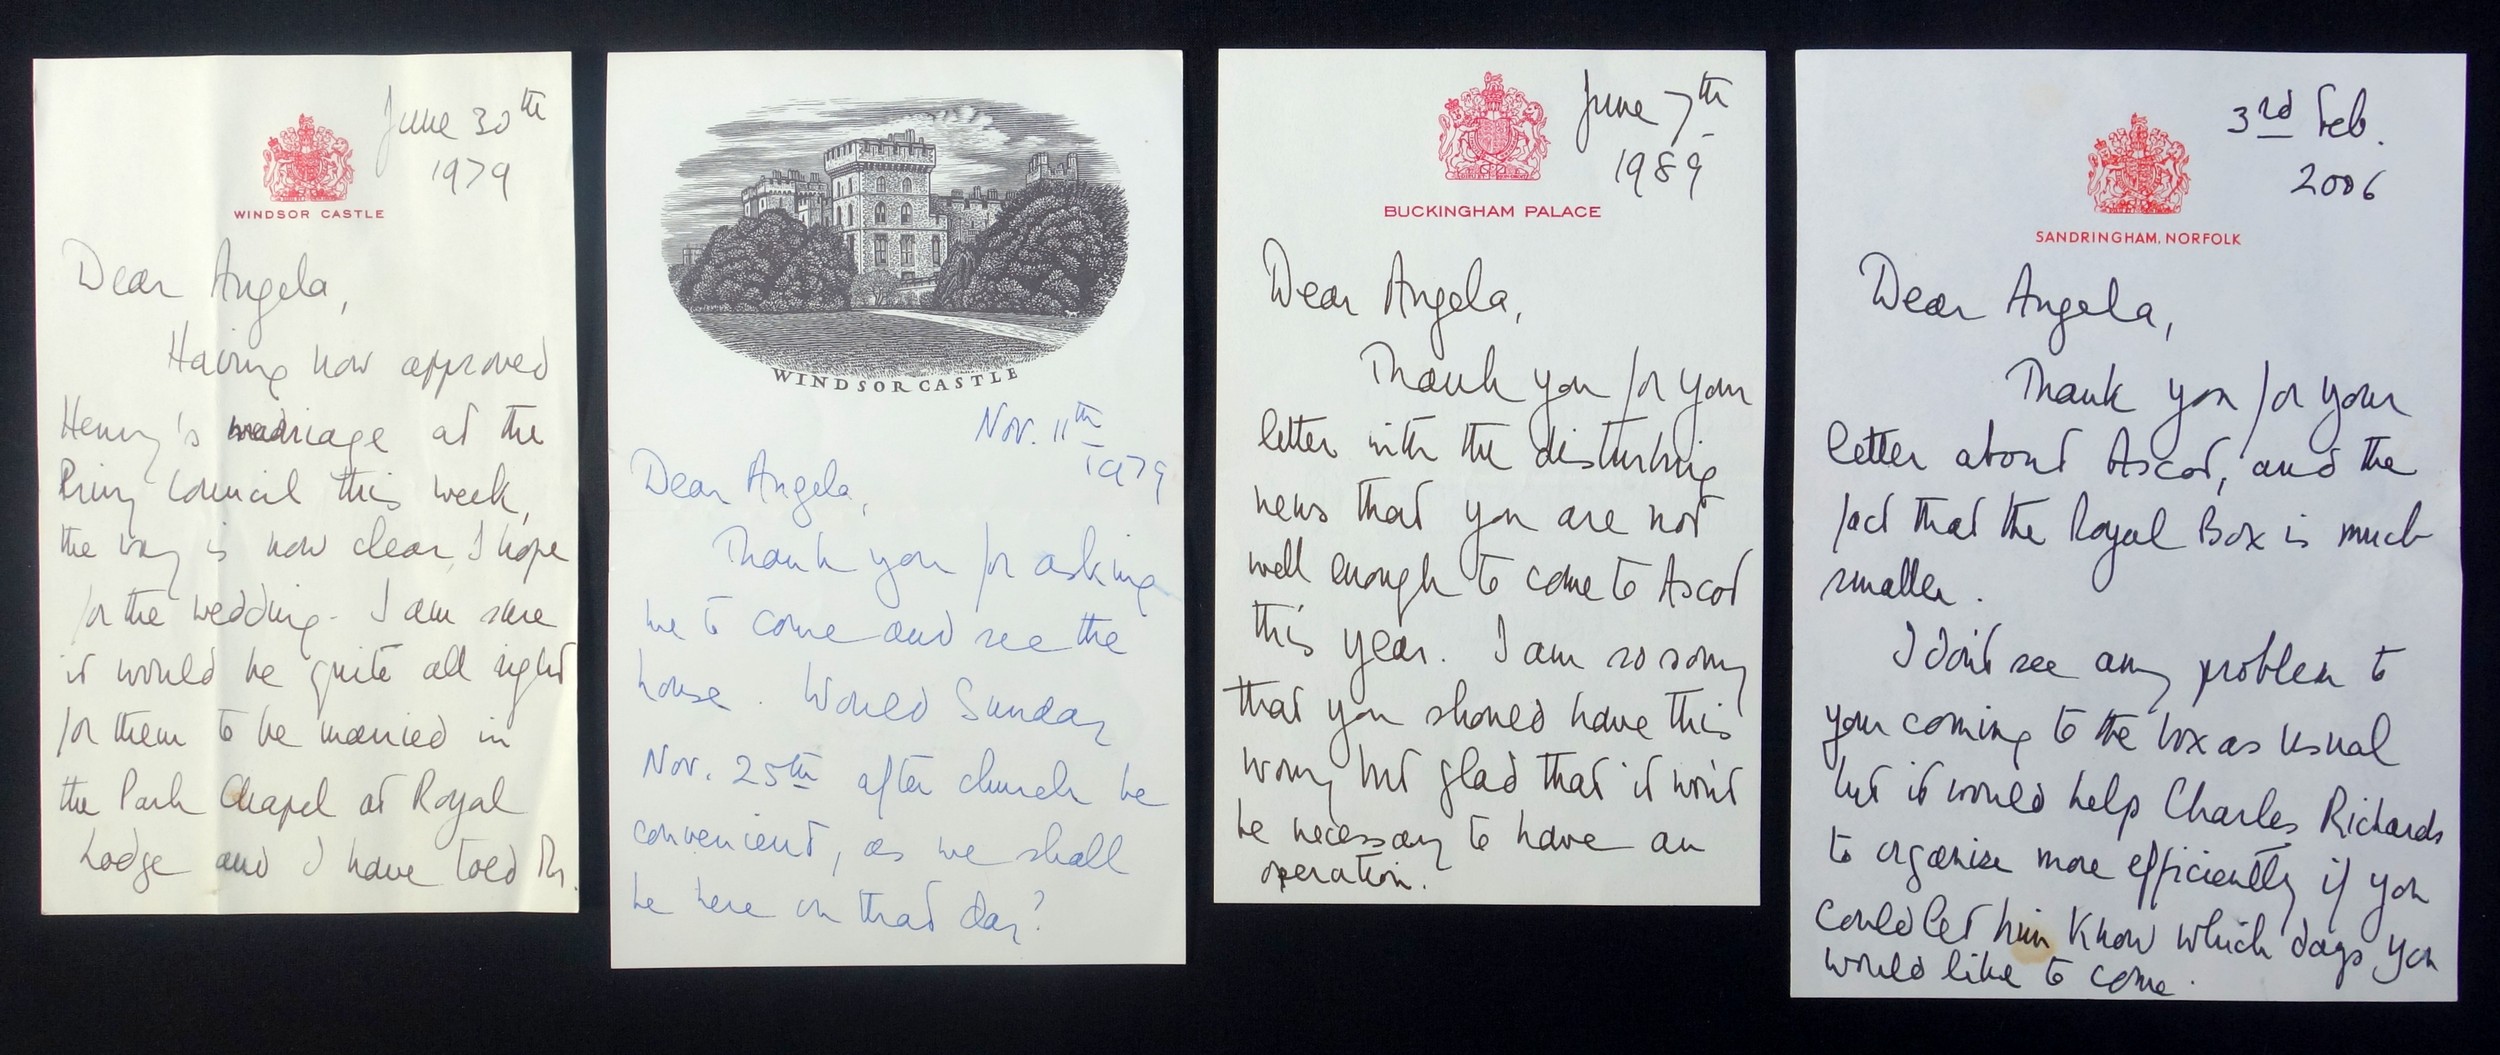 June 30th
1979
WINDSOR CASTLE
Dear Angela,
Having now approved
Henry's marriage at the
Privy Council this week,
the way is now clear, I hope
for the wedding. I am sure
it would be quite all right
for them to be married in
the Park Chapel at Royal
Lodge and I have told Mr.
WINDSOR CASTLE
Nov. 11th
1979
Dear Angela,
Thank you for asking
me to come and see the
house. Would Sunday
Nov. 25th after church be
convenient, as we shall
be here on that day?
June 7th
1989
BUCKINGHAM PALACE
Dear Angela,
Thank you for your
letter with the disturbing
news that you are not
well enough to come to Ascot
this year. I am so sorry
that you should have this
worry but glad that it won't
be necessary to have an
operation.
3rd Feb.
2006
SANDRINGHAM, NORFOLK
Dear Angela,
Thank you for your
letter about Ascot, and the
fact that the Royal Box is much
smaller.
I don't see any problem to
your coming to the box as usual
but it would help Charles Richards
to organise more efficiently if you
could let him know which days you
would like to come.